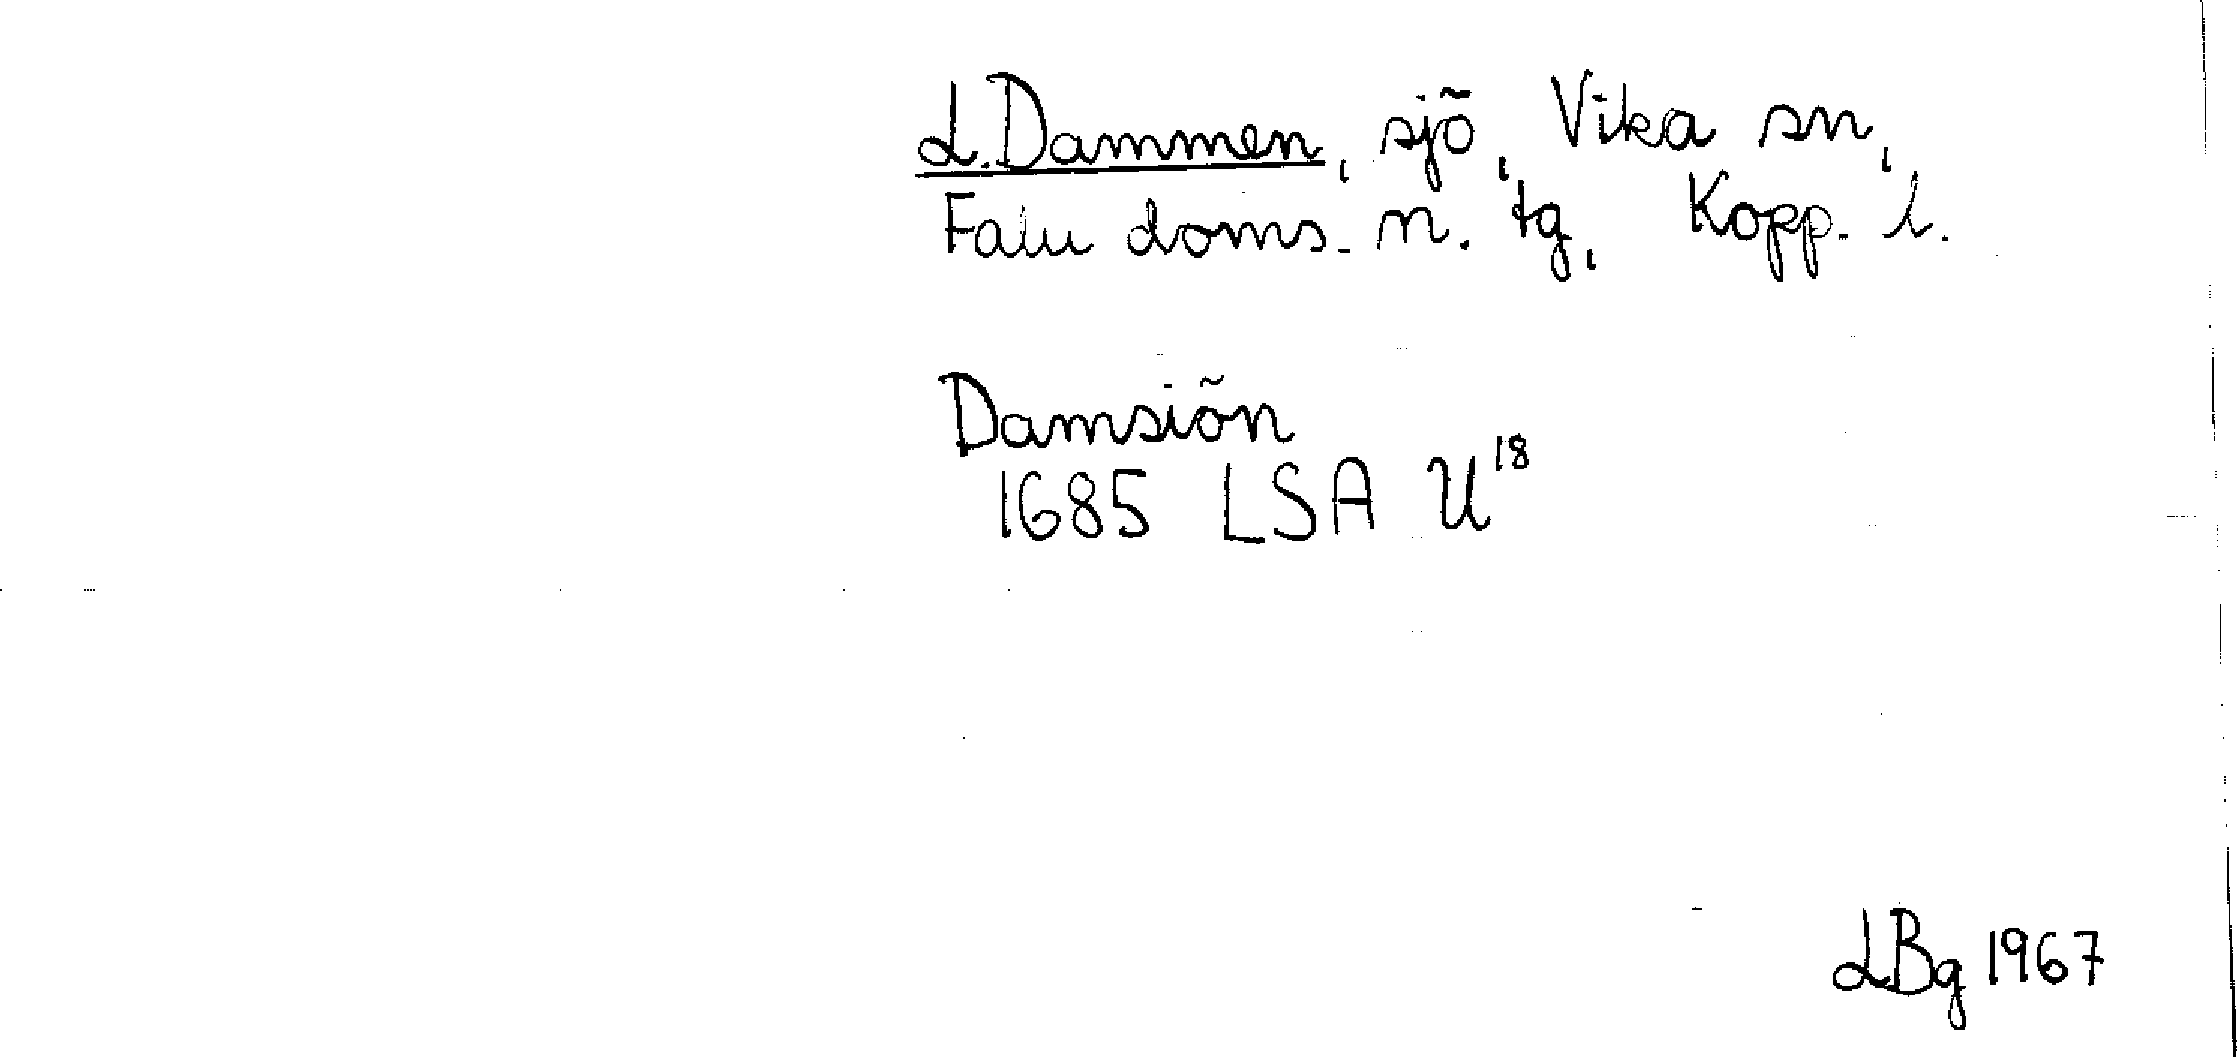 L. Dammen, sjö, Vika sn,
Falu doms. n. tg, Kopp. l.
Damsiön
1685 LSA U18
LBg 1967